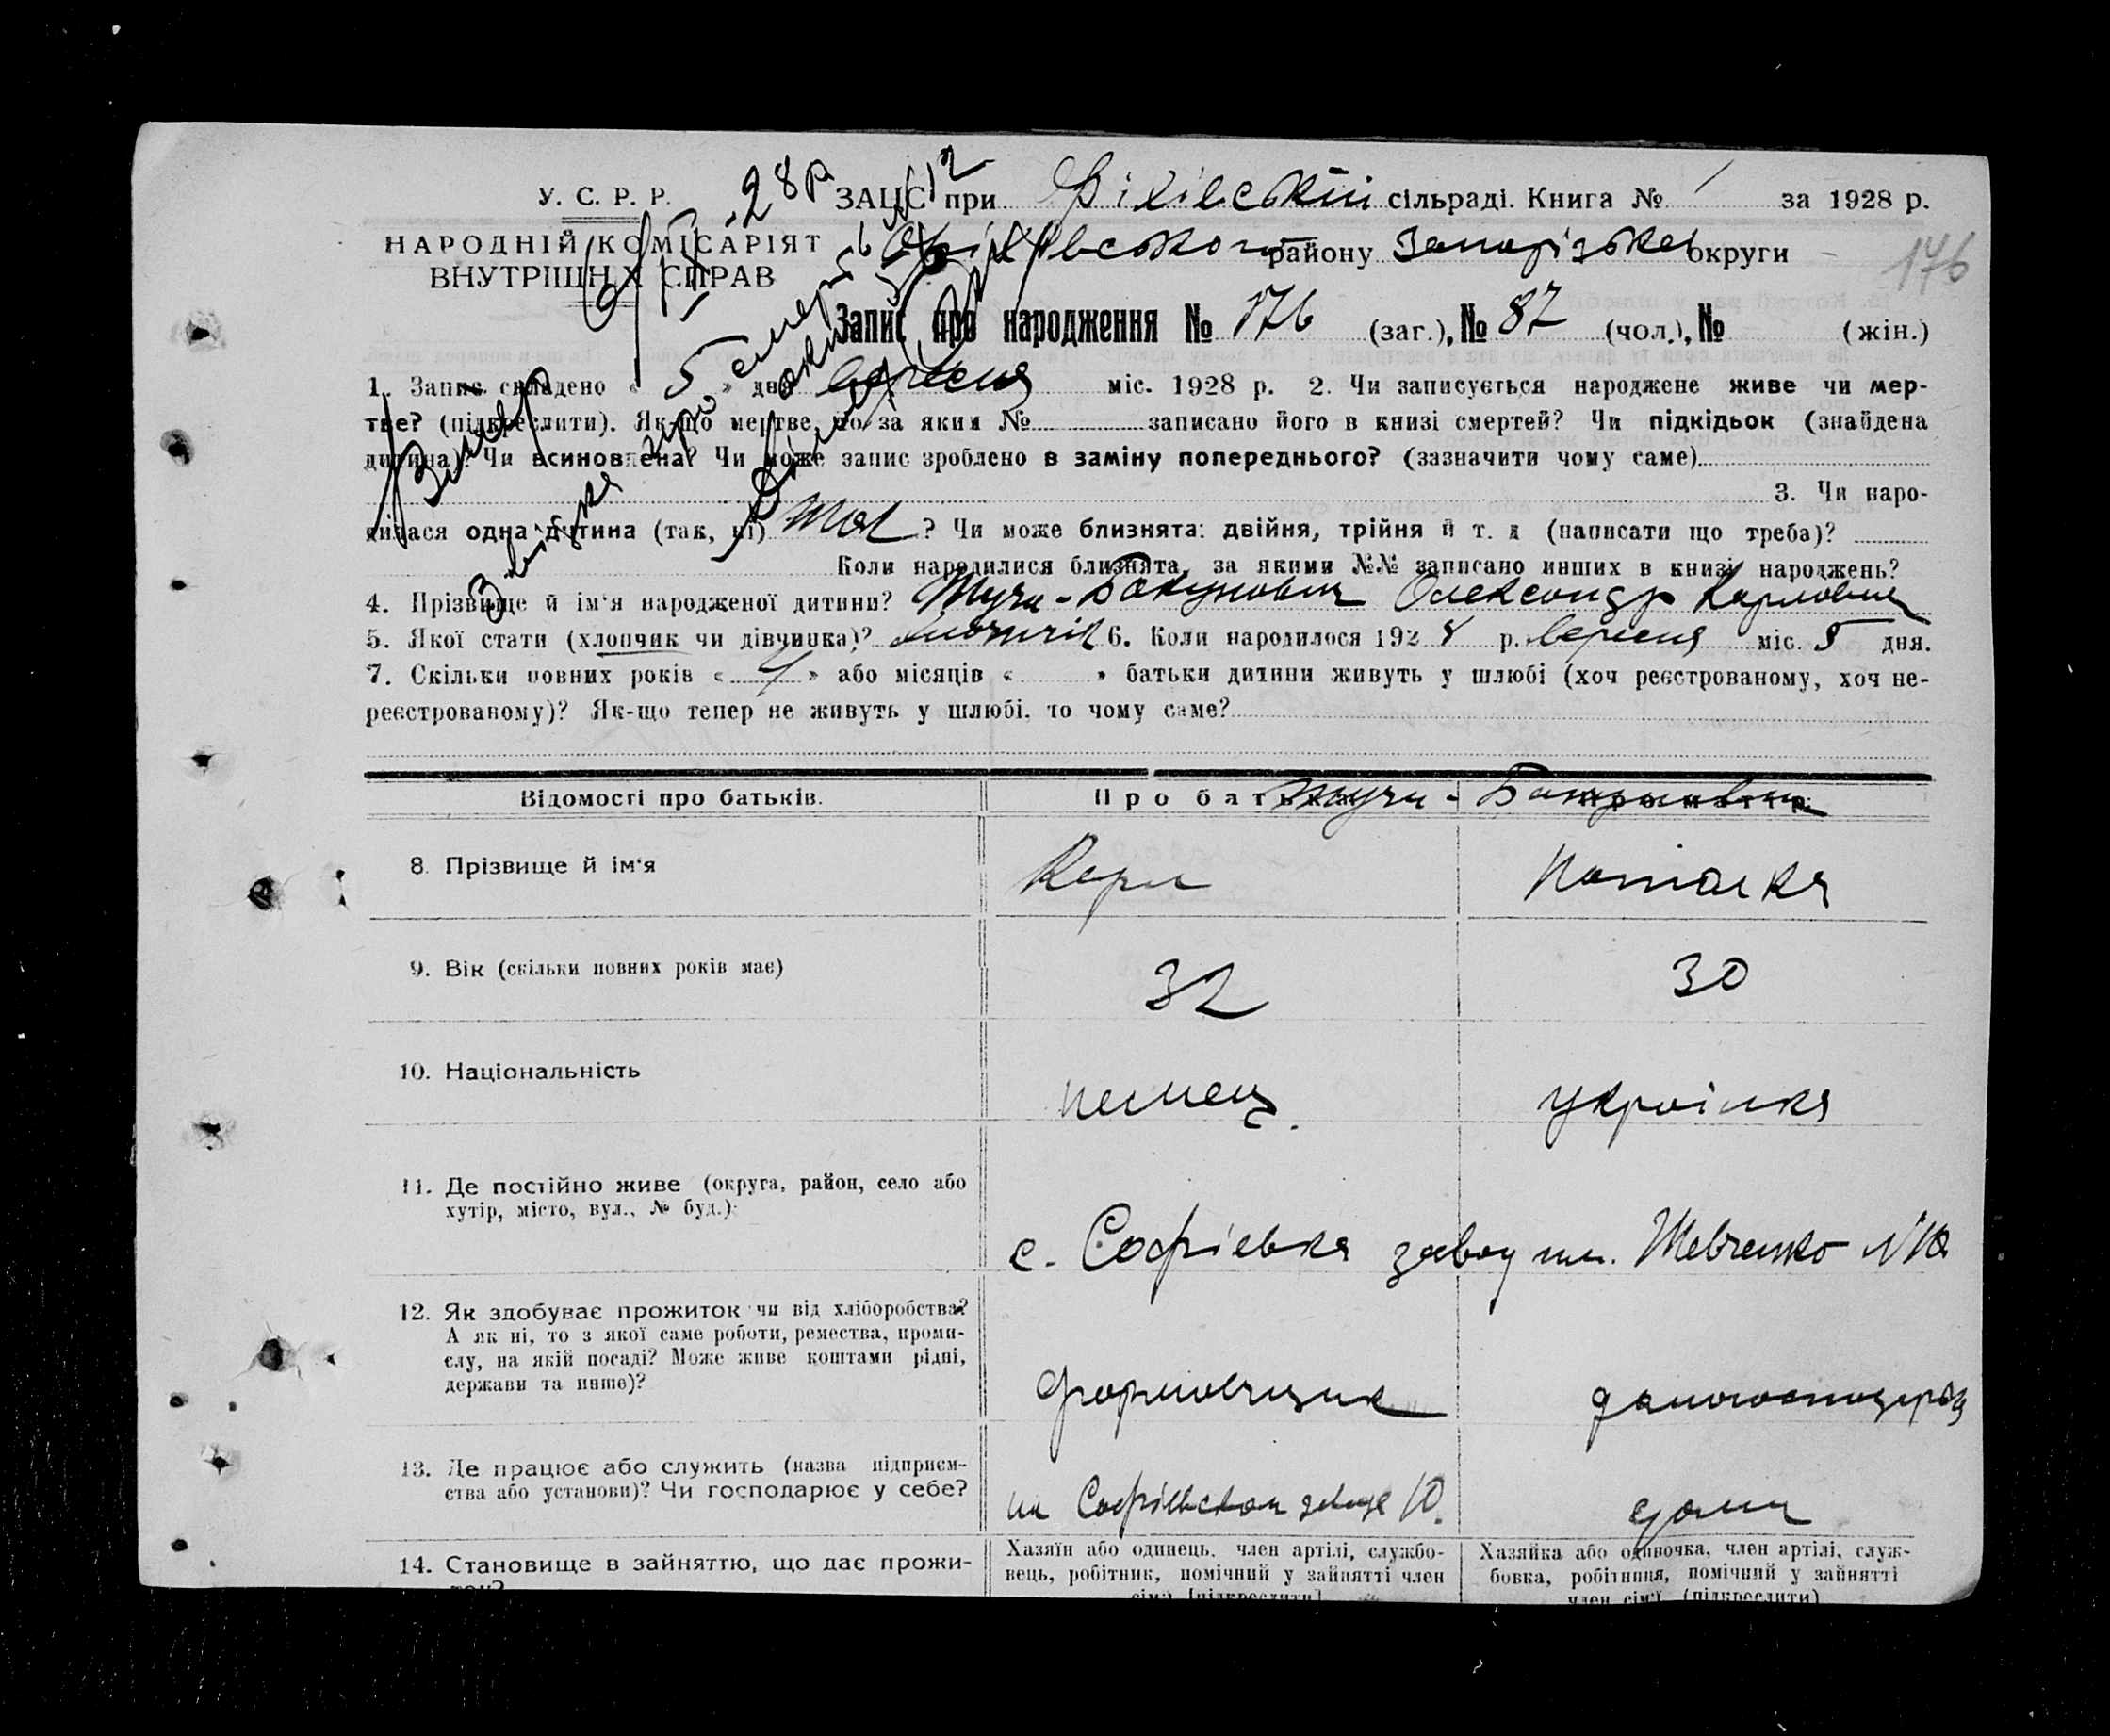 У. С. Р. Р.
НАРОДНІЙ КОМІСАРІЯТ
ВНУТРІШНІХ СПРАВ
ЗАЦС при сільраді. Книга № 1 за 1928 р.
району округи
176
Запис про народження № 176 (заг.), № 87 (чол.), № (жін.)
1. Запис складено « 5 » дня вересня міс. 1928 р. 2. Чи записується народжене живе чи мер-
тве? (підкреслити). Як-що мертве, то за яким № записано його в книзі смертей? Чи підкідьок (знайдена
дитина)? Чи всиновлена? Чи може запис зроблено в заміну попереднього? (зазначити чому саме)
3. Чи наро-
дилася одна дитина (так, ні) так ? Чи може близнята: двійня, трійня й т. д (написати що треба)?
Коли народилися близнята, за якими №№ записано инших в книзі народжень?
4. Прізвище й ім'я народженої дитини? Олександр Карлович
5. Якої стати (хлопчик чи дівчинка)? хлопчик 6. Коли народилося 192 8 р. вересня міс. 5 дня.
7. Скільки повних років « 4 » або місяців « » батьки дитини живуть у шлюбі (хоч реєстрованому, хоч не-
реєстрованому)? Як-що тепер не живуть у шлюбі, то чому саме?
Відомості про батьків. Про батька Про матір
8. Прізвище й ім'я Карл Наталка
9. Вік (скільки повних років має) 32 30
10. Національність немец. українка
11. Де постійно живе (округа, район, село або
хутір, місто, вул., № буд.)
с. Софіевка завод им. Шевченко №10
12. Як здобуває прожиток чи від хліборобства?
А як ні, то з якої саме роботи, ремества, проми-
слу, на якій посаді? Може живе коштами рідні,
держави та инше)?
формовщик
13. Де працює або служить (назва підприєм-
ства або установи)? Чи господарює у себе?
на Софіевском заводе 10. дома
14. Становище в зайняттю, що дає прожи-
ток?
Хазяїн або одинець, член артілі, службо-
вець, робітник, помічний у зайнятті член
сім'ї [підкреслити]
Хазяйка або одиночка, член артілі, служ-
бовка, робітниця, помічний у зайнятті
член сім'ї (підкреслити)